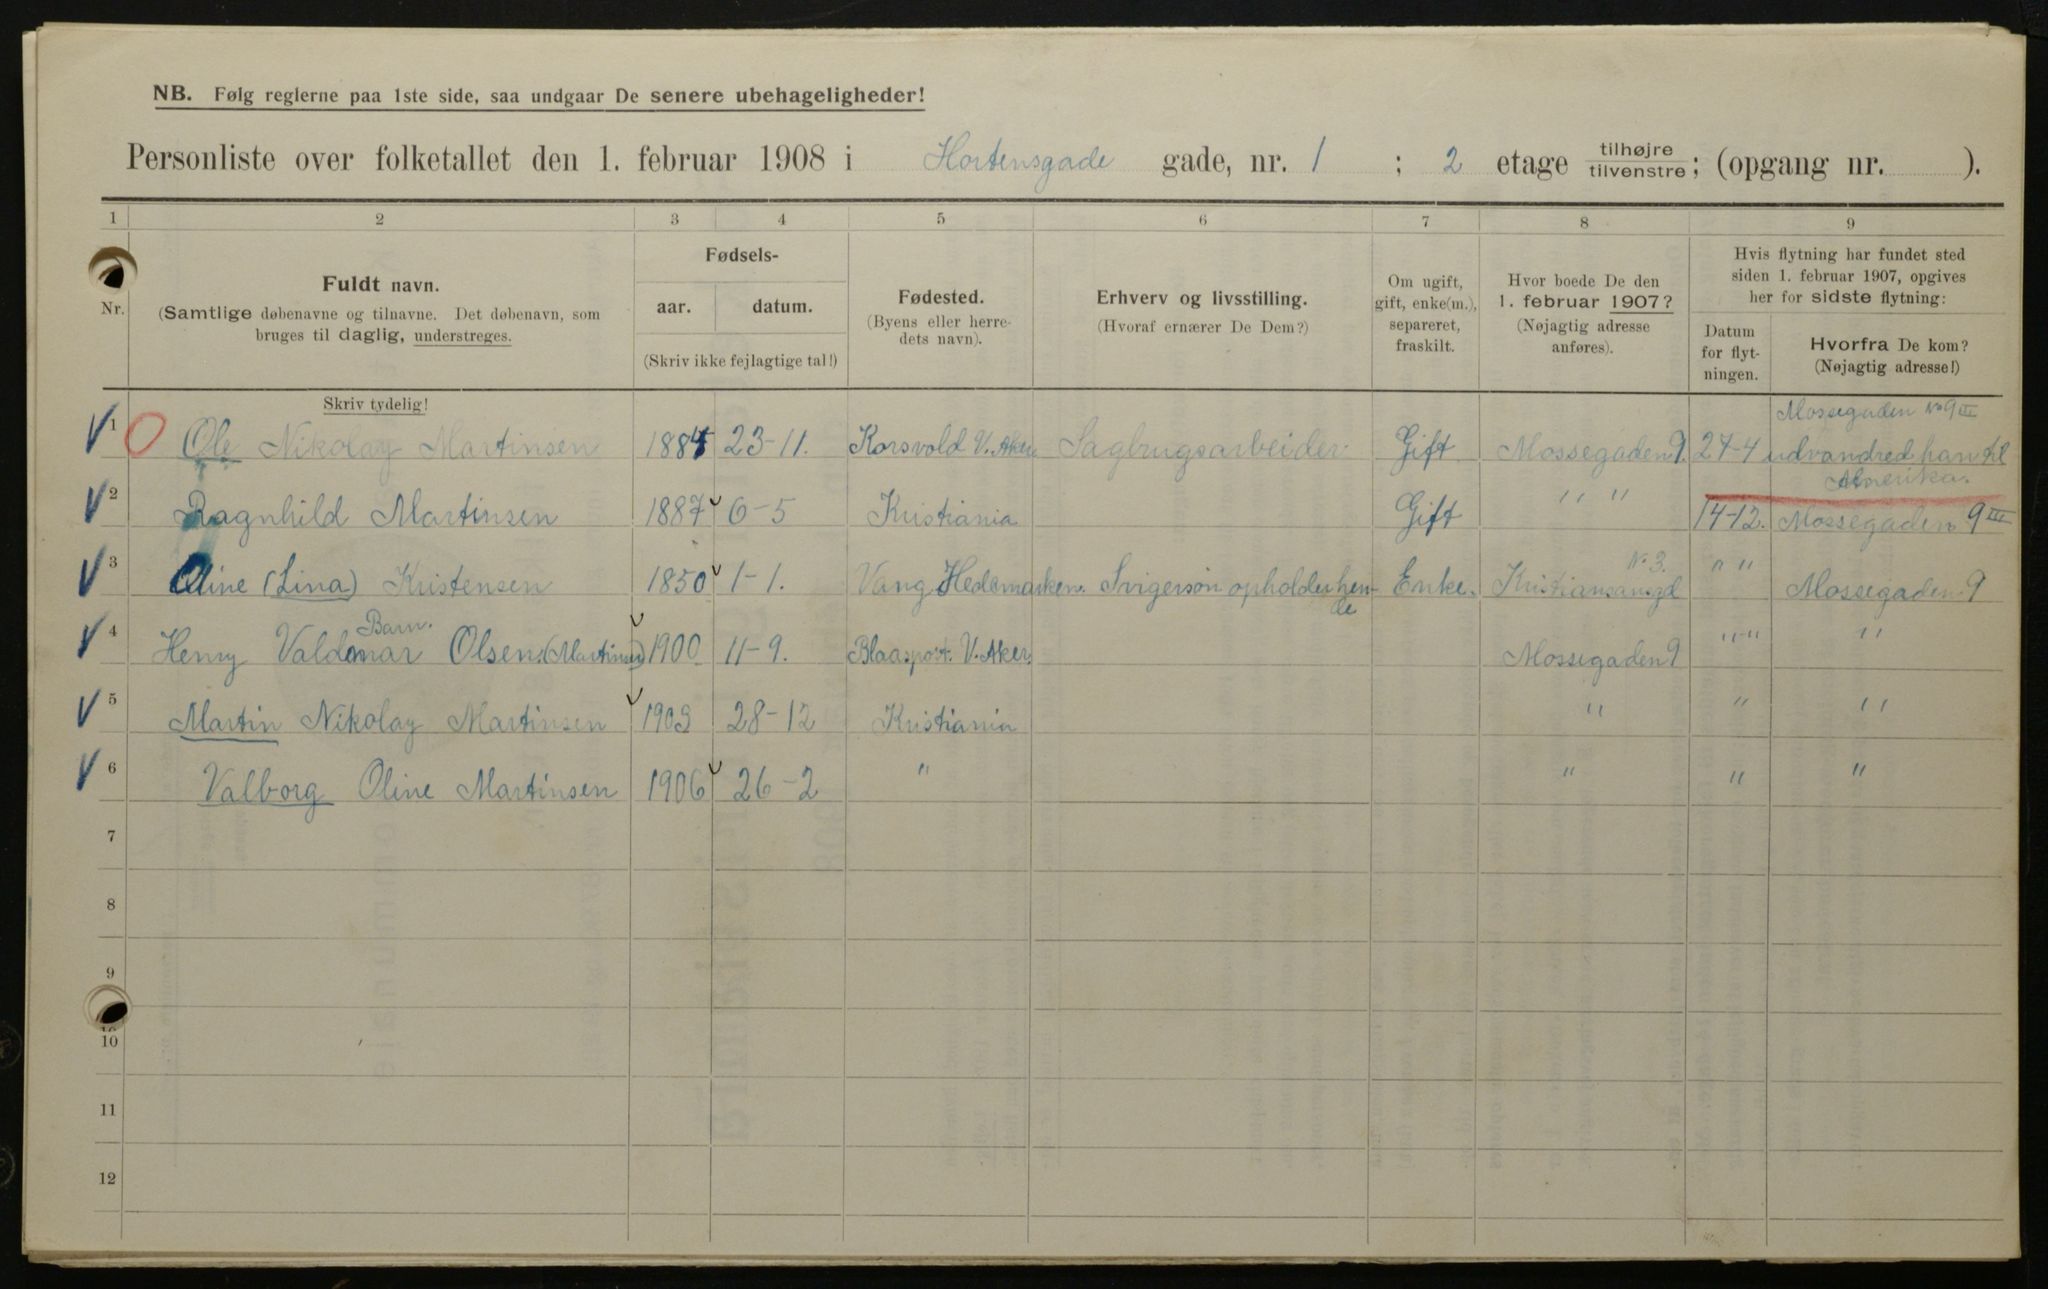 NB. Følg reglerne paa 1ste side, saa undgaar De senere ubehageligheder!
Personliste over folketallet den 1. februar 1908 i Hortensgade gade, nr. 1 ; 2 etage tilhøjre tilvenstre ; (opgang nr. ).
1 2 3 4 5 6 7 8 9
Nr.
Fuldt navn.
(Samtlige døbenavne og tilnavne. Det døbenavn, som
bruges til daglig, understreges.
Skriv tydelig!
Fødsels-
aar. datum.
(Skriv ikke fejlagtige tal!)
Fødested.
(Byens eller herre-
dets navn).
Erhverv og livsstilling.
(Hvoraf ernærer De Dem?)
Om ugift,
gift, enke(m.),
separeret,
fraskilt.
Hvor boede De den
1. februar 1907?
(Nøjagtig adresse
anføres).
Hvis flytning har fundet sted
siden 1. februar 1907, opgives
her for sidste flytning:
Datum
for flyt-
ningen.
Hvorfra De kom?
(Nøjagtig adresse!)
Mossegaden No 9 III
1 Ole Nikolay Martinsen 1884 23-11. Korsvold V. Aker Sagbrugsarbeider Gift Mossegaden 9. 27-4 udvandred han til
Amerika.
2 Ragnhild Martinsen 1887 6-5 Kristiania Gift " " 14-12. Mossegaden 9 III
3 Oline (Lina) Kristensen 1850 1-1. Vang Hedemarken. Svigersøn opholder hen-
de Enke. No 3. " " Mossegaden 9
4 Barn.
Henry Valdemar Olsen. (Martinsen) 1900 11-9. V. Aker. Mossegaden 9 " " "
5 Martin Nikolay Martinsen 1903 28-12 Kristiania " " "
6 Valborg Oline Martinsen 1906 26-2 " " " "
7
8
9
10
11
12